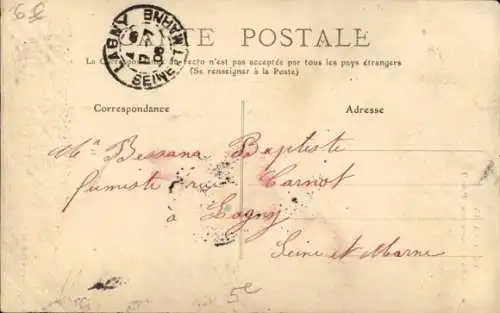 6€
CARTE POSTALE
La Correspondance au recto n'est pas acceptée par tous les pays étrangers
(Se renseigner à la Poste)
LAGNY
SEINE ET MARNE
Correspondance
Adresse
Mr Bessana Baptiste
fumiste rue Carnot
à Lagny
Seine et Marne
5€